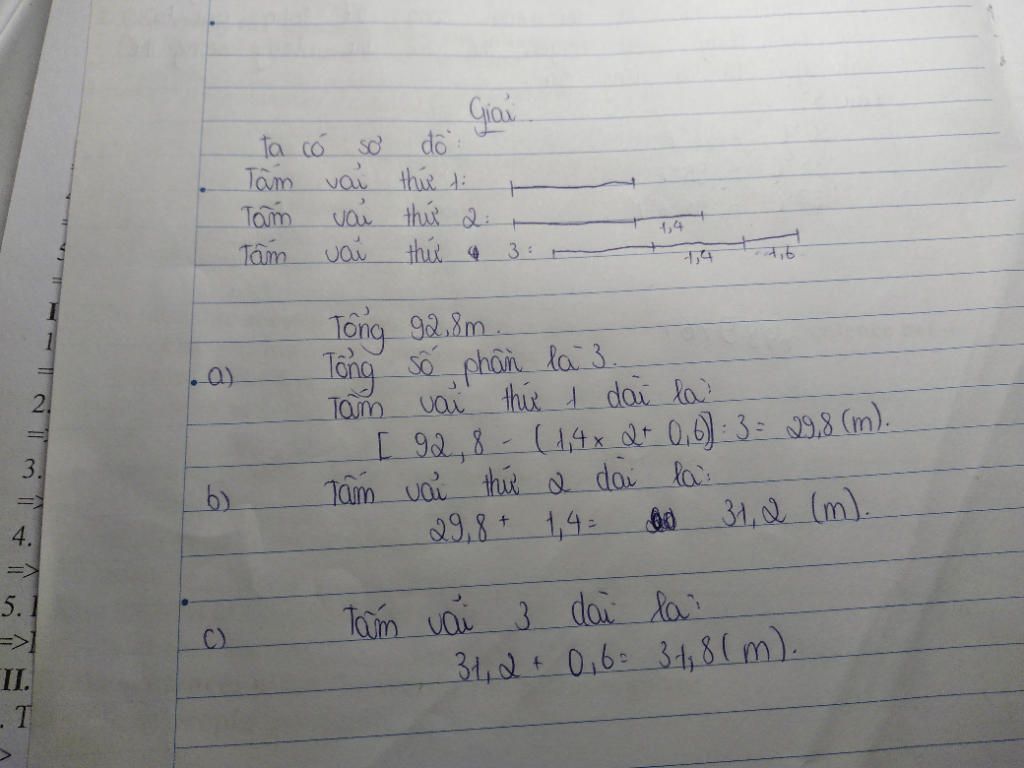 Giải.
Ta có sơ đồ:
Tấm vải thứ 1:
Tấm vải thứ 2:
1,4
Tấm vải thứ 3:
1,4 1,6
Tổng 92,8m.
a) Tổng số phần là 3.
Tấm vải thứ 1 dài là:
[ 92,8 - (1,4 x 2 + 0,6] : 3 = 29,8 (m).
b) Tấm vải thứ 2 dài là:
29,8 + 1,4 = 31,2 (m).
c) Tấm vải 3 dài là:
31,2 + 0,6 = 31,8 (m).
1
1
=
2.
=
3.
=>
4.
=>
5. 1
=>1
II.
. T